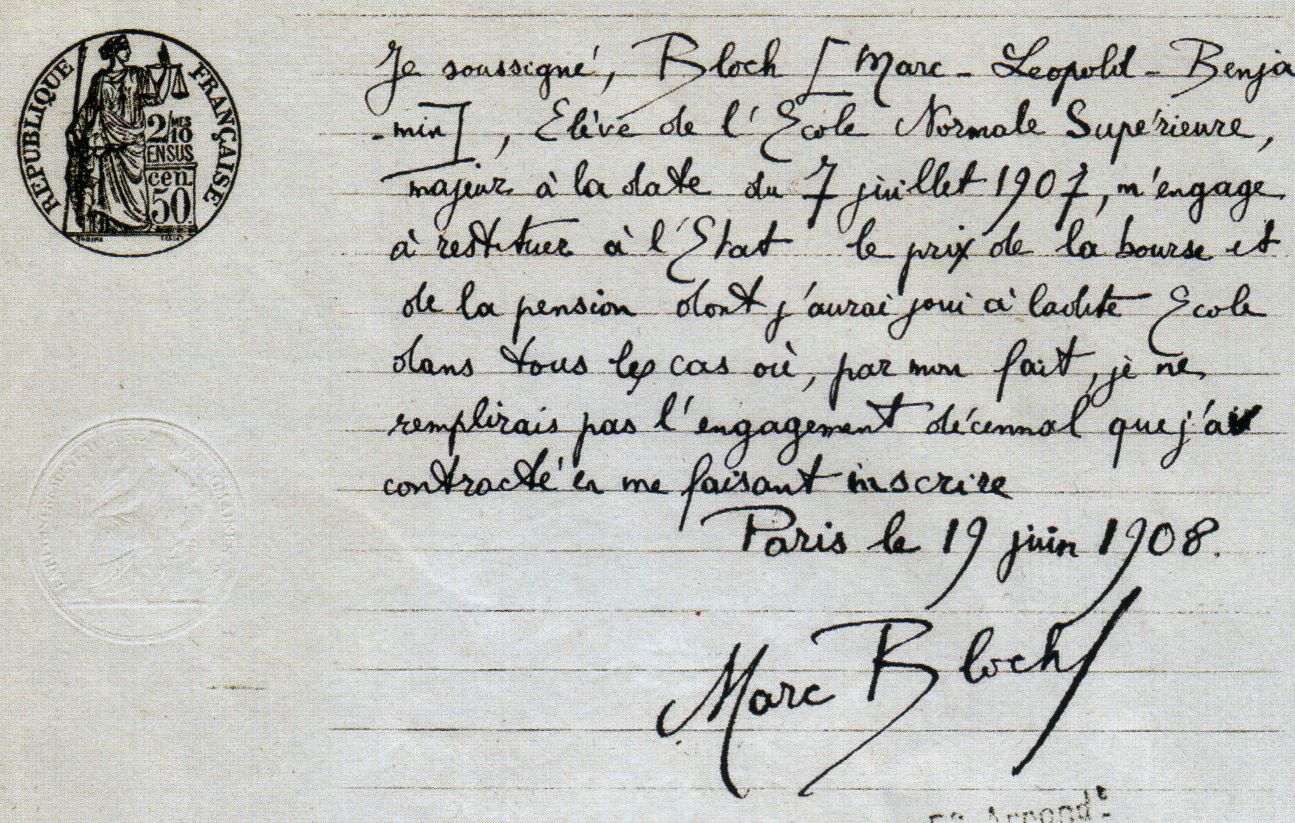 RÉPUBLIQUE FRANÇAISE
2/MES
10
EN SUS
cen.
50
Je soussigné, Bloch [Marc - Leopold - Benja
-min], Elève de l'Ecole Normale Supérieure,
majeur à la date du 7 juillet 1907, m'engage
à restituer à l'Etat le prix de la bourse et
de la pension dont j'aurai joui à ladite Ecole
dans tous les cas où, par mon fait, je ne
remplirais pas l'engagement décennal que j'ai
contracté en me faisant inscrire
Paris le 19 juin 1908.
Marc Bloch
5e Arrondt